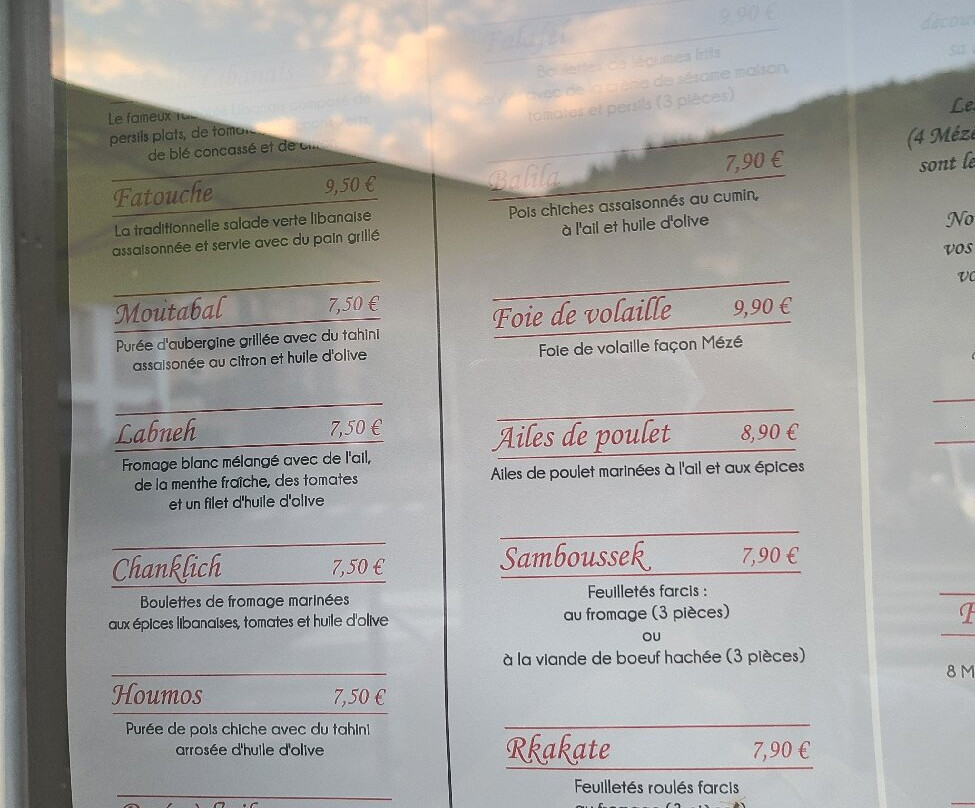 Libanais
Le fameux
persils plats, de
de blé concassé et de
Fatouche 9,50 €
La traditionnelle salade verte libanaise
assaisonnée et servie avec du pain grillé
Moutabal 7,50 €
Purée d'aubergine grillée avec du tahini
assaisonée au citron et huile d'olive
Labneh 7,50 €
Fromage blanc mélangé avec de l'ail,
de la menthe fraîche, des tomates
et un filet d'huile d'olive
Chanklich 7,50 €
Boulettes de fromage marinées
aux épices libanaises, tomates et huile d'olive
Houmos 7,50 €
Purée de pois chiche avec du tahini
arrosée d'huile d'olive
Falafel 9,90 €
Boulettes de légumes frits
avec de la crème de sésame maison,
tomates et persils (3 pièces)
Balila 7,90 €
Pois chiches assaisonnés au cumin,
à l'ail et huile d'olive
Foie de volaille 9,90 €
Foie de volaille façon Mézé
Ailes de poulet 8,90 €
Ailes de poulet marinées à l'ail et aux épices
Samboussek 7,90 €
Feuilletés farcis :
au fromage (3 pièces)
ou
à la viande de boeuf hachée (3 pièces)
Rkakate 7,90 €
Feuilletés roulés farcis
au fromage
(4 Mézé
sont
No
vos
8 M